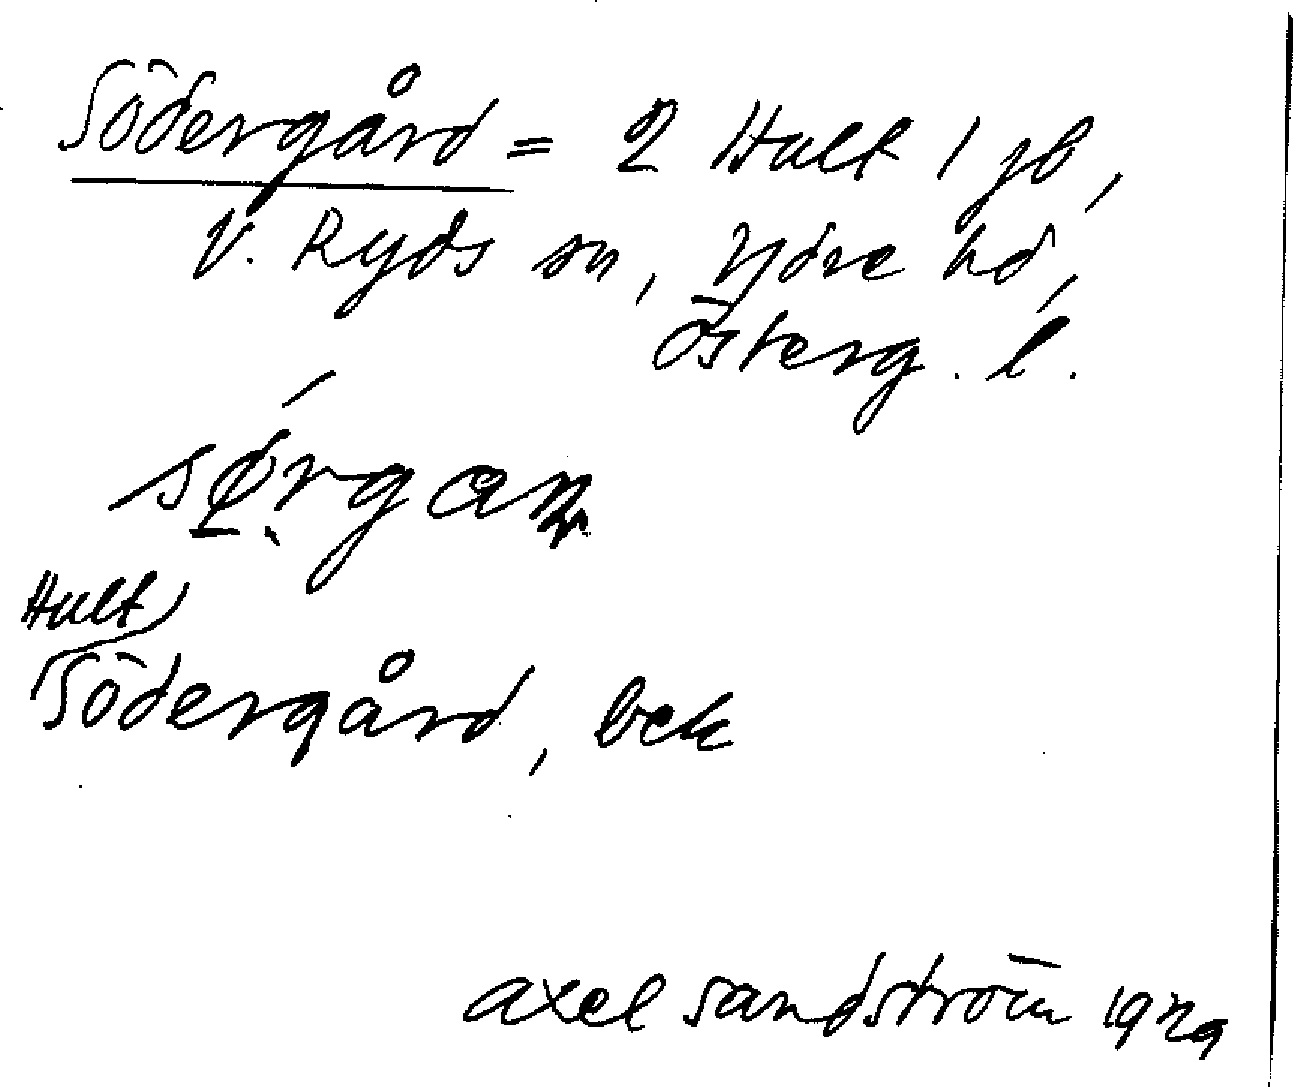 Södergård = 2 Hult 1 jb,
V. Ryds sn, Ydre hd,
Österg. l.
Hult
Södergård, bek
axel sandström 1929